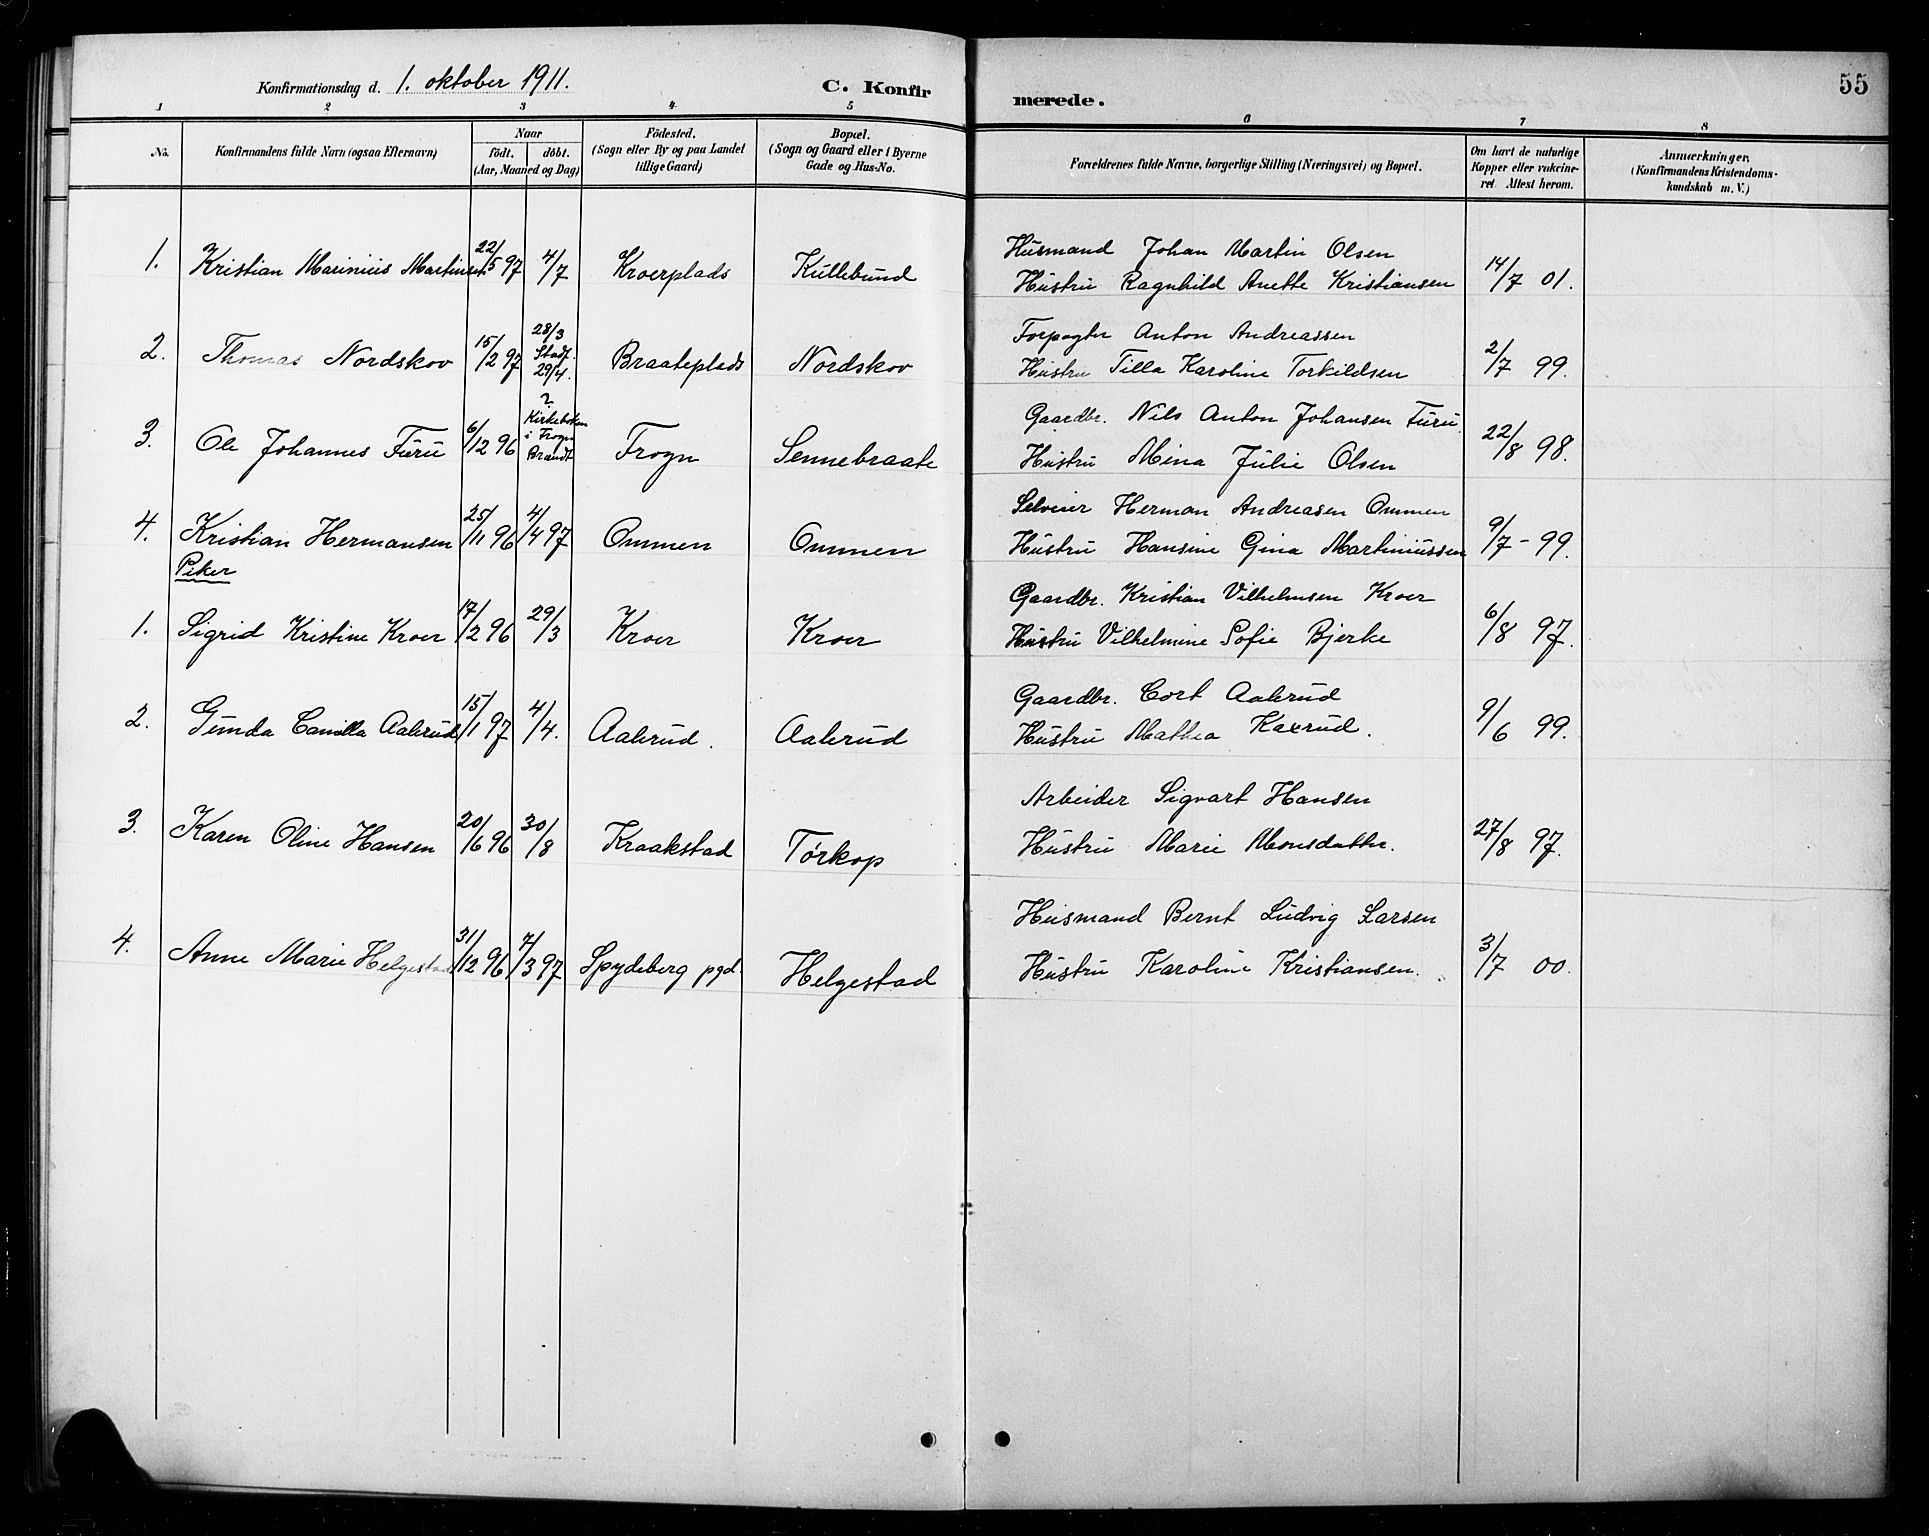 Konfirmationsdag d. 1. oktober 1911.
C. Konfirmerede.
55
1 2 3 4 5 6 7 8
No. Konfirmandens fulde Navn (ogsaa Efternavn) Naar födt. döbt. (Aar, Maaned og Dag) Födested. (Sogn eller By og paa Landet tillige Gaard) Bopæl. (Sogn og Gaard eller i Byerne Gade og Hus-No. Forældrenes fulde Navne, borgerlige Stilling (Næringsvei) og Bopæl. Om havt de naturlige Kopper eller vakcineret. Attest herom. Anmærkninger. (Konfirmandens Kristendomskundskab m. V.)
1. Kristian Marinius Martinsen 22/5 97 4/7 Kroerplads Kullebund Husmand Johan Martin Olsen
Hustru Ragnhild Anette Kristiansen 14/7 01.
2. Thomas Nordskov 15/2 97 28/3 Stadf. 29/4. Braateplads Nordskov Forpagter Anton Andreassen
Hustru Tilla Karoline Torkildsen 2/7 99.
3. Ole Johannes Furu 6/12 96 ? Kirkeboken i Frogn Brændt Frogn Sennebraate Gaardbr. Nils Anton Johansen Furu.
Hustru Mina Julie Olsen 22/8 98.
4. Kristian Hermansen 25/11 96 4/4 97 Ommen Ommen Selveier Herman Andreasen Ommen
Hustru Hansine Gina Martiniussen 9/7 - 99.
Piker
1. Sigrid Kristine Kroer 17/2 96 29/3 Kroer Kroer Gaardbr. Kristian Vilhelmsen Kroer
Hustru Vilhelmine Sofie Bjerke 6/8 97.
2. Gunda Camilla Aakrud 15/1 97 4/4. Aakrud. Aakrud Gaardbr. Cort Aakrud
Hustru Mathea Kaxrud. 9/6 99.
3. Karen Oline Hansen 20/6 96 30/8 Kraakstad Tørkop Arbeider Sigvart Hansen
Hustru Marie Monsdatter. 27/8 97.
4. Anne Marie Helgestad 31/12 96 7/3 97 Spydeberg pgd. Helgestad Husmand Bernt Ludvig Larsen
Hustru Karoline Kristiansen. 3/7 00.